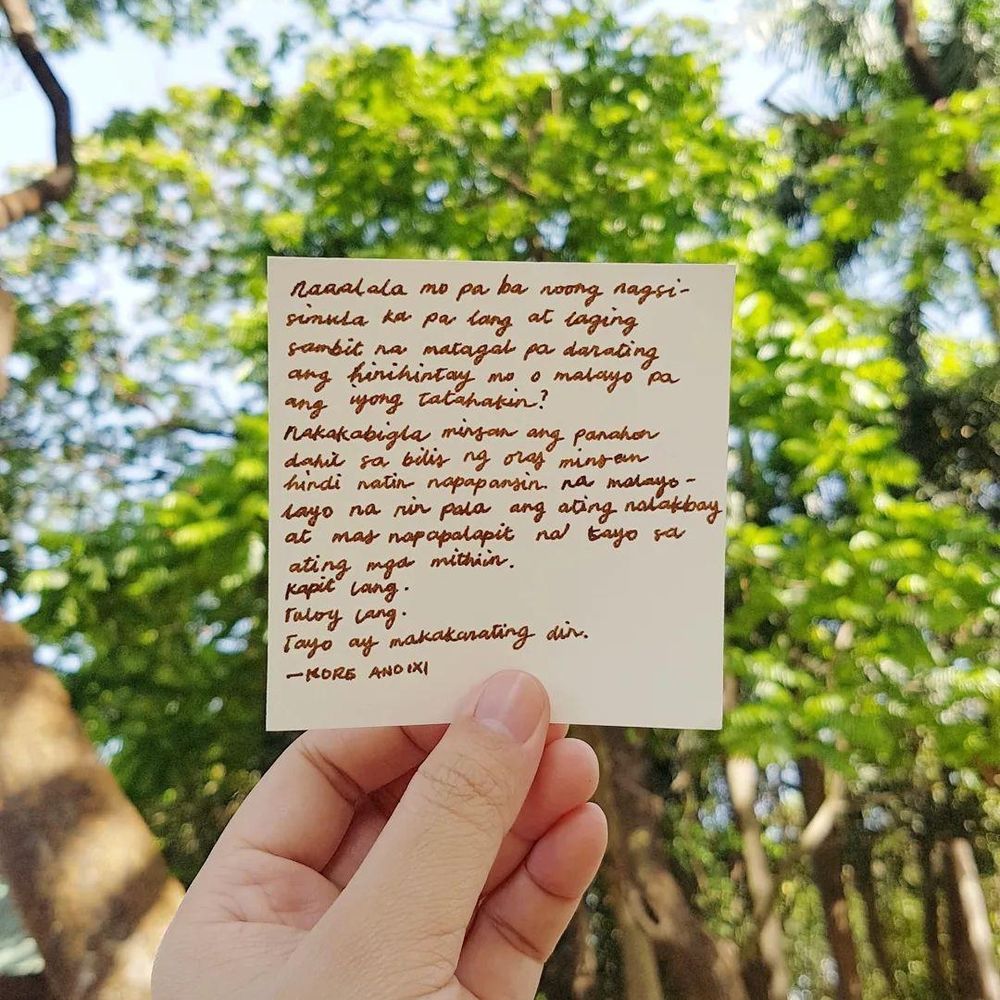 naaalala mo pa ba noong nagsi-
simula ka pa lang at laging
sambit na matagal pa darating
ang hinihintay mo o malayo pa
ang iyong tatahakin?
Nakakabigla minsan ang panahon
dahil sa bilis ng oras minsan
hindi natin napapansin na malayo-
layo na rin pala ang ating nalakbay
at mas napapalapit na tayo sa
ating mga mithiin.
Kapit lang.
Tuloy lang.
Tayo ay makakarating din.
—KORE ANOIXI